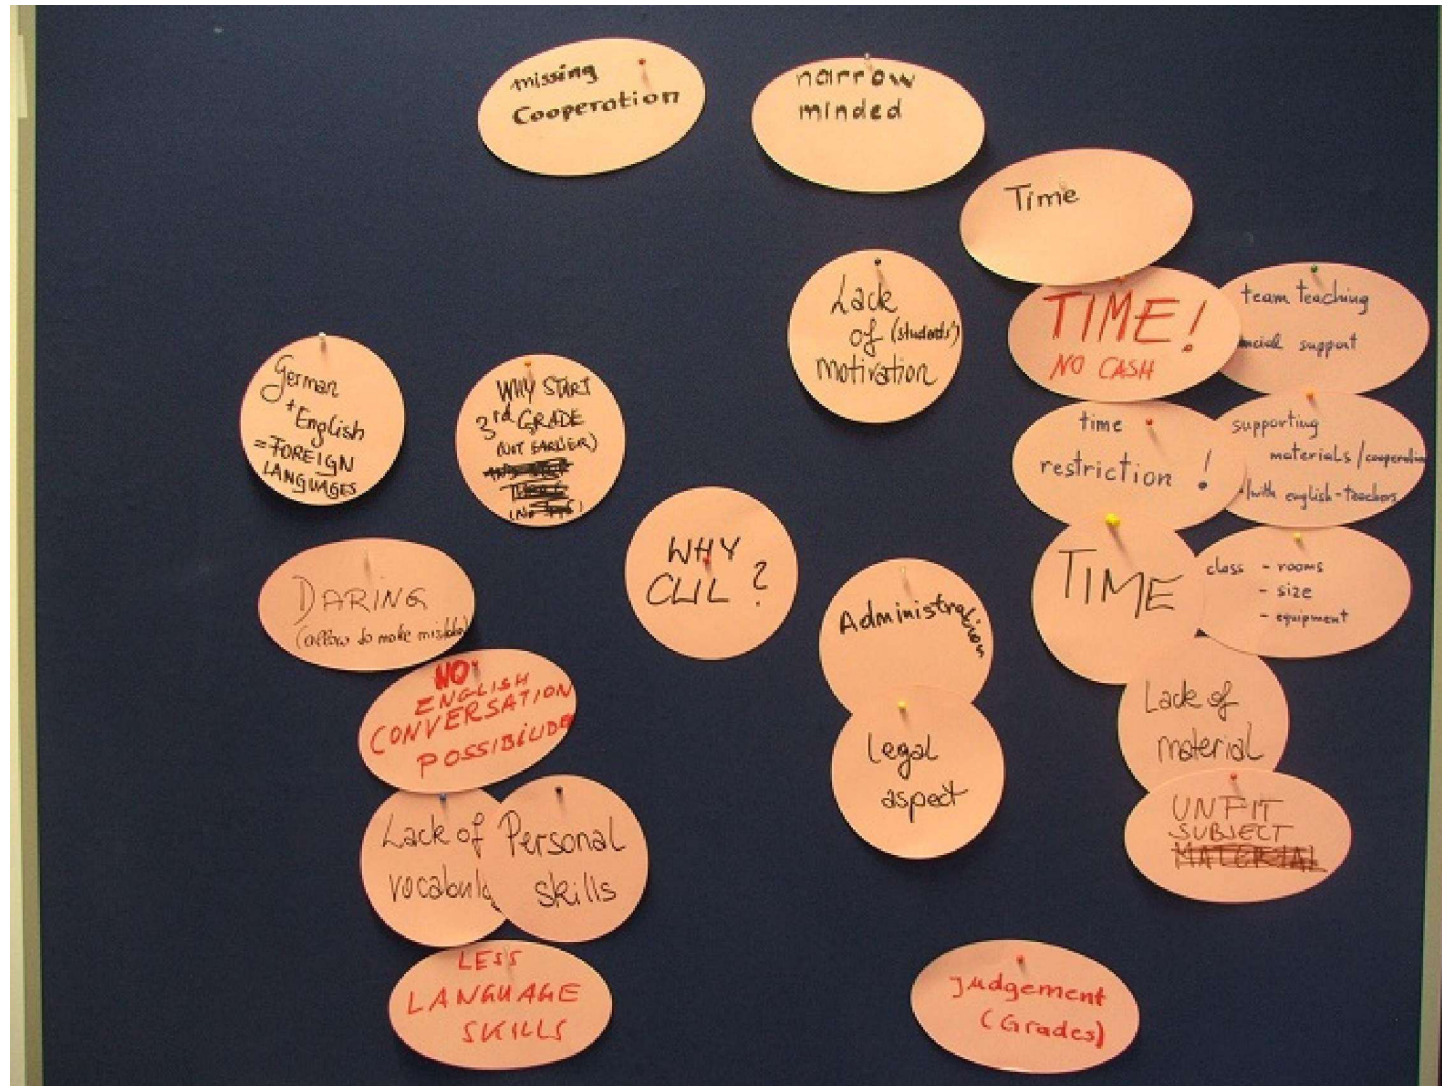 missing
Cooperation
narrow
minded
Time
Lack
of (students')
motivation
TIME!
NO CASH
team teaching
support
German
+ English
= FOREIGN
LANGUAGES
WHY START
3rd GRADE
(NOT EARLIER)
time
restriction !
supporting
materials/cooperation
with english-teachers
WHY
CLIL ?
DARING
(allow to make mistakes)
Administration
TIME
class - rooms
- size
- equipment
NO
ENGLISH
CONVERSATION
POSSIBILIDE
Legal
aspect
Lack of
material
UNFIT
SUBJECT
MATERIAL
Lack of
vocabula
Personal
skills
LESS
LANGUAGE
SKILLS
judgement
(Grades)